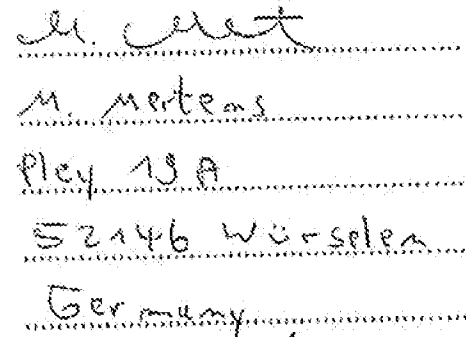 M. Mertens
Pley 19 A
52146 Würselen
Germany